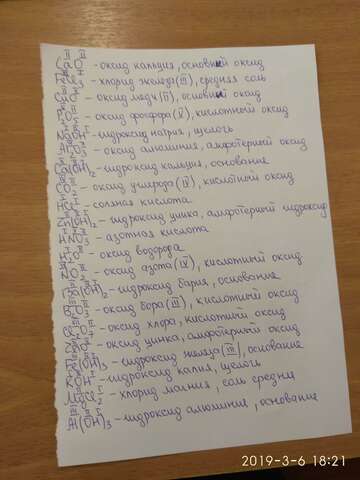 CaO - оксид кальция, основный оксид
FeCl3 - хлорид железа (III), средняя соль
CuO - оксид меди (II), основный оксид
P2O5 - оксид фосфора (V), кислотный оксид
NaOH - гидроксид натрия, щелочь
Al2O3 - оксид алюминия, амфотерный оксид
Ca(OH)2 - гидроксид кальция, основание
CO2 - оксид углерода (IV), кислотный оксид
HCl - соляная кислота
Zn(OH)2 - гидроксид цинка, амфотерный гидроксид
HNO3 - азотная кислота
H2O - оксид водорода
- оксид азота (IV), кислотный оксид
Ba(OH)2 - гидроксид бария, основание
B2O3 - оксид бора (III), кислотный оксид
- оксид хлора, кислотный оксид
ZnO - оксид цинка, амфотерный оксид
Fe(OH)3 - гидроксид железа (III), основание
KOH - гидроксид калия, щелочь
MgCl2 - хлорид магния, соль средняя
Al(OH)3 - гидроксид алюминия, основание
2019-3-6 18:21